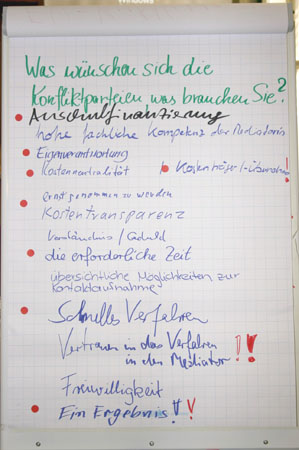 Was wünschen sich die
Konfliktparteien was brauchen Sie?
Anschubfinanzierung
hohe fachliche Kompetenz der Mediatoris
Eigenverantwortung
Kostenneutralität
Kostenträger/-übernahme!
ernst genommen zu werden
Kostentransparenz
Verständnis / Geduld
die erforderliche Zeit
übersichtliche Möglichkeiten zur
Kontaktaufnahme
Schnelles Verfahren
Vertrauen in das Verfahren
in den Mediator !!
Freiwilligkeit
Ein Ergebnis !!